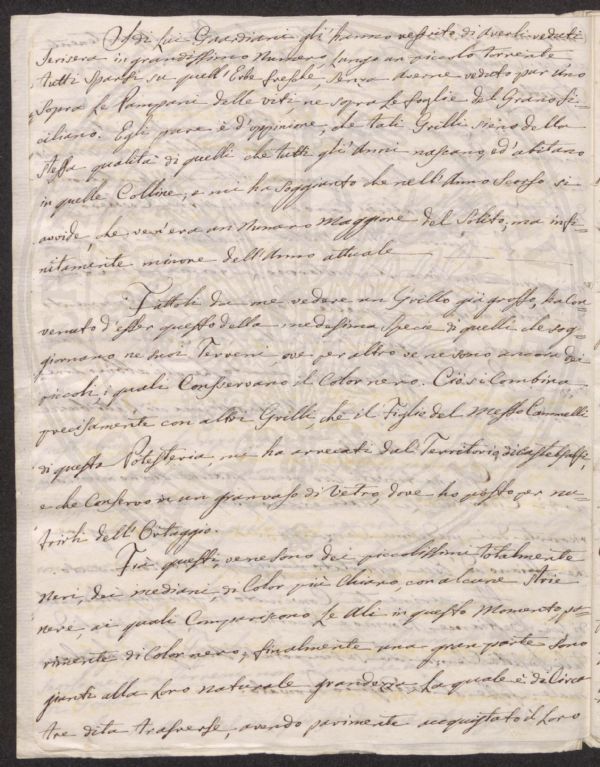 I di Lui Guardiani gli hanno referito di averli veduti
Jerisera in grandissimo Numero Lungo un piccolo torrente
tutti sparsi su quell'Erbe fresche, senza averne veduto pur Uno
sopra Le Pampani delle viti ne sopra Le foglie del Grano Si=
ciliano. Egli pare è d'oppinione, che tali Grilli sieno della
stessa qualità di quelli che tutti gl'Anni nascano, ed abitano
in quelle Colline, e mi ha soggiunto che nell'Anno Scorso si
avvide, che ven'era un Numero Maggiore del Solito, ma infi=
nitamente minore dell'Anno attuale
Fattoli da me vedere un Grillo più grosso, ha Con
venuto d'esser questo della medesima Specie di quelli che sog
giornano ne suoi Terreni, ove per altro ve ne sono ancora dei
piccoli, i quali Conservano il Color nero. Ciò si Combina
precisamente con altri Grilli, che il Figlio del Messo Cammelli
di questa Potesteria, mi ha arrecati dal Territorio di Castelpassi,
e che Conservo in un gran vaso di Vetro, dove ho posto per nu=
trirli dell'Ortaggio.
Fra questi, ve ne sono dei piccolissimi totalmente
neri, dei mediani, di Color più Chiaro, con alcune Strie
nere, ai quali Compariscono Le Ali in questo Momento, pa
rimente di Color nero; finalmente una gran parte sono
giunti alla Loro naturale grandezza, La quale è di Circa
tre dita trasverse, avendo parimente acquistato il Loro